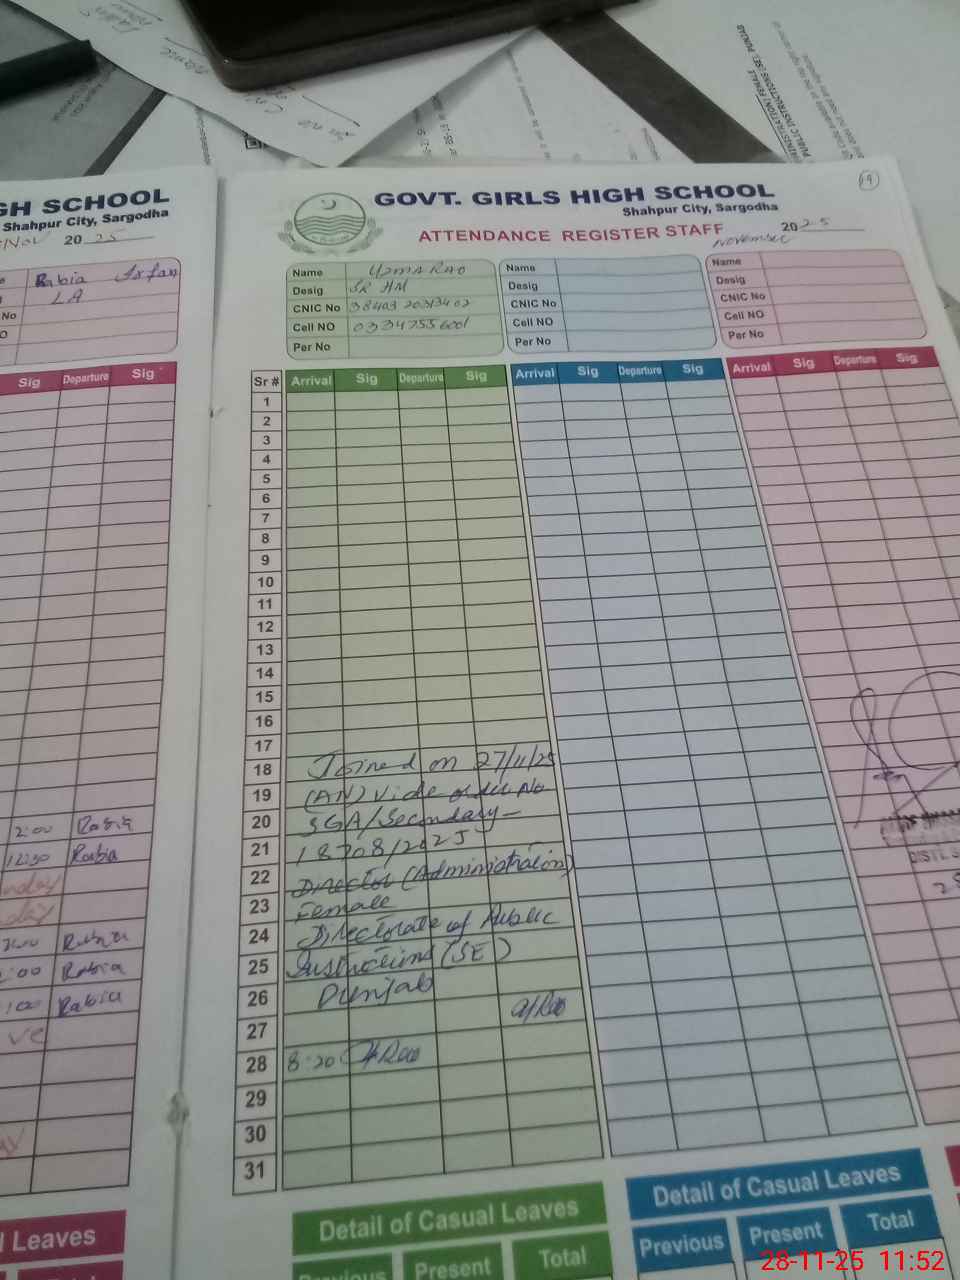 GH SCHOOL
Shahpur City, Sargodha
Nov 2025
Rabia Irfan
LA
No
Sig Departure Sig
2:00 Rabia
12:30 Rabia
Rabia
:00 Rabia
Rabia
Leaves
PUBLIC INSTRUCTIONS (SE), PUNJAB
19
GOVT. GIRLS HIGH SCHOOL
Shahpur City, Sargodha
ATTENDANCE REGISTER STAFF
2025
November
Name Uzma Rao
Desig SR HM
CNIC No
Cell NO
Per No
Name
Desig
CNIC No
Cell NO
Per No
Name
Desig
CNIC No
Cell NO
Per No
Sr # Arrival Sig Departure Sig Arrival Sig Departure Sig Arrival Sig Departure Sig
1
2
3
4
5
6
7
8
9
10
11
12
13
14
15
16
17
18 Joined on 27/11/25
19 (AN) Vide order No
20 SGA/Secondary-
21 18708/2025
22 Director (Administration)
23 Female
24 Directorate of Public
25 Instructions (SE)
26 Punjab
27 Rao
28 8:20 Rao
29
30
31
Detail of Casual Leaves
Previous Present Total
Detail of Casual Leaves
Previous Present Total
28-11-25 11:52